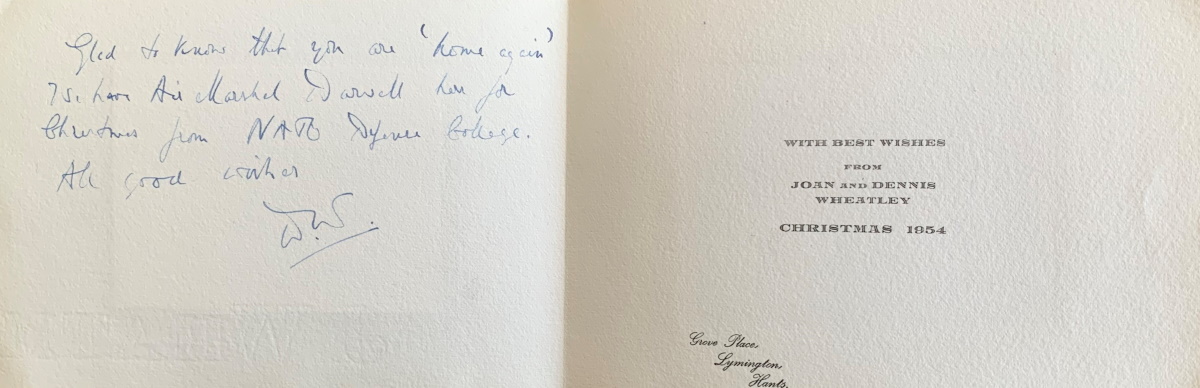 Glad to know that you are 'home again'
have Air Marshal Darvall here for
Christmas from NATO Defence College.
All good wishes
D.W.
WITH BEST WISHES
FROM
JOAN AND DENNIS
WHEATLEY
CHRISTMAS 1954
Grove Place,
Lymington,
Hants.